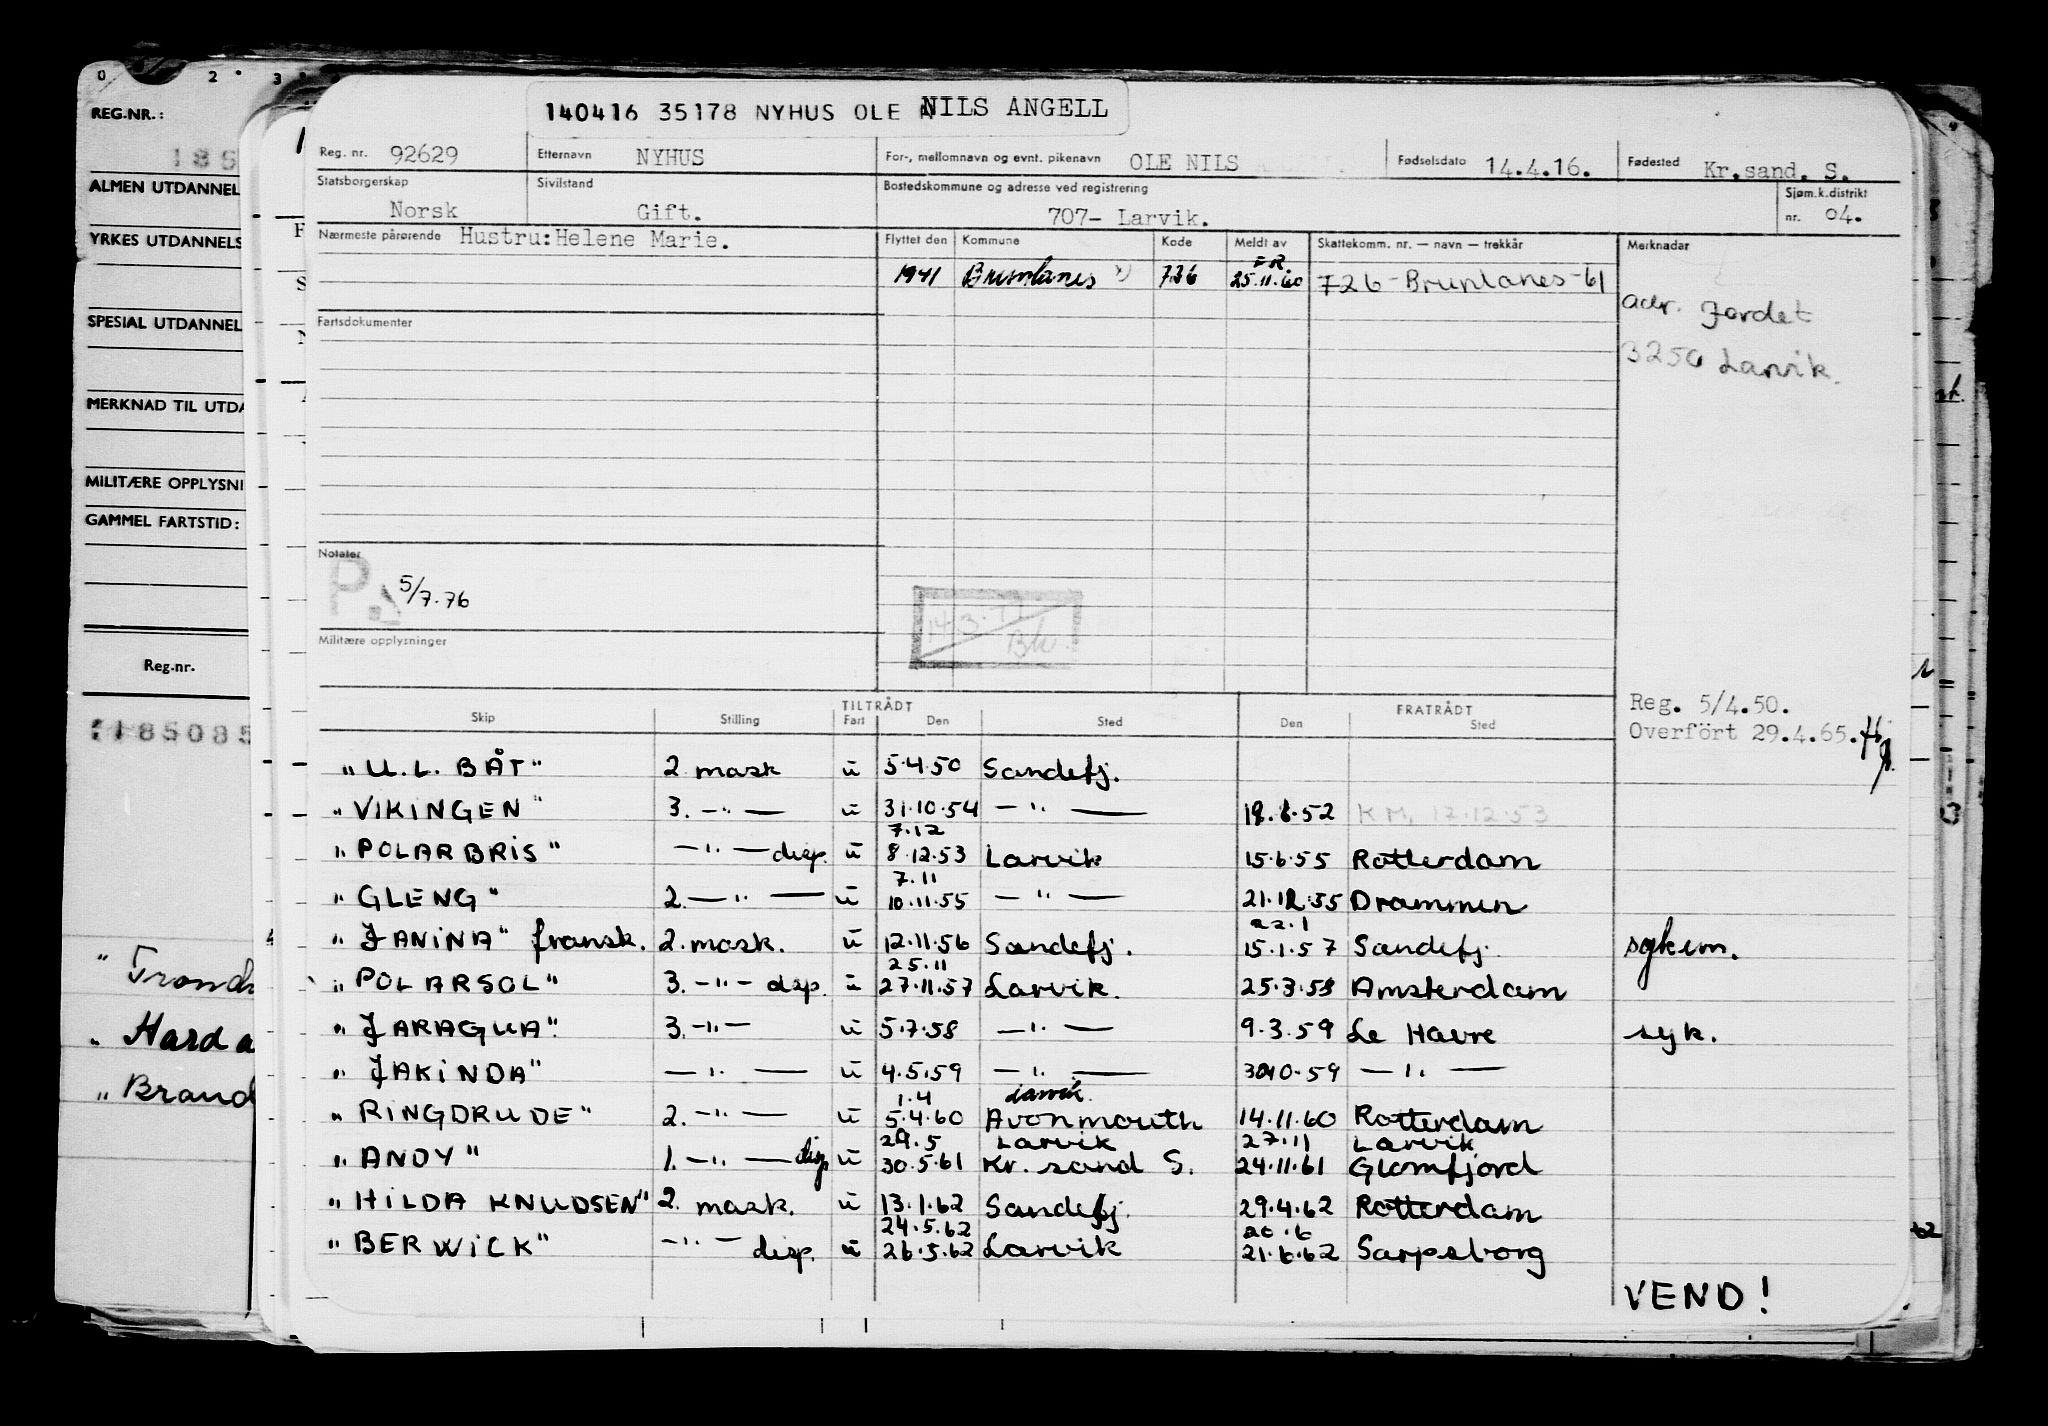 0 2 3
REG.NR.:
185
ALMEN UTDANNEL
YRKES UTDANNELS
SPESIAL UTDANNEL
MERKNAD TIL UTDA
MILITÆRE OPPLYSNI
GAMMEL FARTSTID:
Reg.nr.
185085
"Trondh
"Harda
"Brand
140416 35178 NYHUS OLE NILS ANGELL
Reg. nr. 92629 Etternavn NYHUS For-, mellomnavn og evnt. pikenavn OLE NILS Fødselsdato 14.4.16. Fødested Kr.sand. S.
Statsborgerskap Sivilstand Bostedskommune og adresse ved registrering Sjøm.k.distrikt
Norsk Gift. 707- Larvik. nr. 04.
Nærmeste pårørende Hustru:Helene Marie. Flyttet den Kommune Kode Meldt av Skattekomm. nr. — navn — trekkår Merknader
FR
1941 Brunlanes x) 726 25.11.60 726-Brunlanes-61
adr. Jordet
Fartsdokumenter
3250 Larvik.
Notater
P. 5/7.76
14.3.77
Bh.
Militære opplysninger
Reg. 5/4.50.
TILTRÅDT FRATRÅDT
Skip Stilling Fart Den Sted Den Sted
Overfört 29.4.65.
"U.L. BÅT" 2. mask u 5.4.50 Sandefj.
"VIKINGEN" 3. —"— u 31.10.54 —"— 19.6.52 KM. 17.12.53
7.12
"POLARBRIS" —"— disp. u 8.12.53 Larvik 15.6.55 Rotterdam
7.11
"GLENG" 2. —"— u 10.11.55 —"— 21.12.55 Drammen
22.1
"JANINA" fransk. 2. mask. u 12.11.56 Sandefj. 15.1.57 Sandefj. sykem.
25.11
"POLARSOL" 3. —"— disp. u 27.11.57 Larvik. 25.3.58 Amsterdam
"JARAGUA" 3. —"— u 5.7.58 —"— 9.3.59 Le Havre syk.
"JAKINDA" —"— u 4.5.59 —"— 30.10.59 —"—
1.4 Larvik
"RINGDRUDE" 2. —"— u 5.4.60 Avonmouth 14.11.60 Rotterdam
29.5 Larvik 27.11 Larvik
"ANDY" 1. —"— disp u 30.5.61 Kr. sand S. 24.11.61 Glomfjord
"HILDA KNUDSEN" 2. mask. u 13.1.62 Sandefj. 29.4.62 Rotterdam
24.5.62 20.6
"BERWICK" —"— disp. u 26.5.62 Larvik 21.6.62 Sarpsborg
VEND!